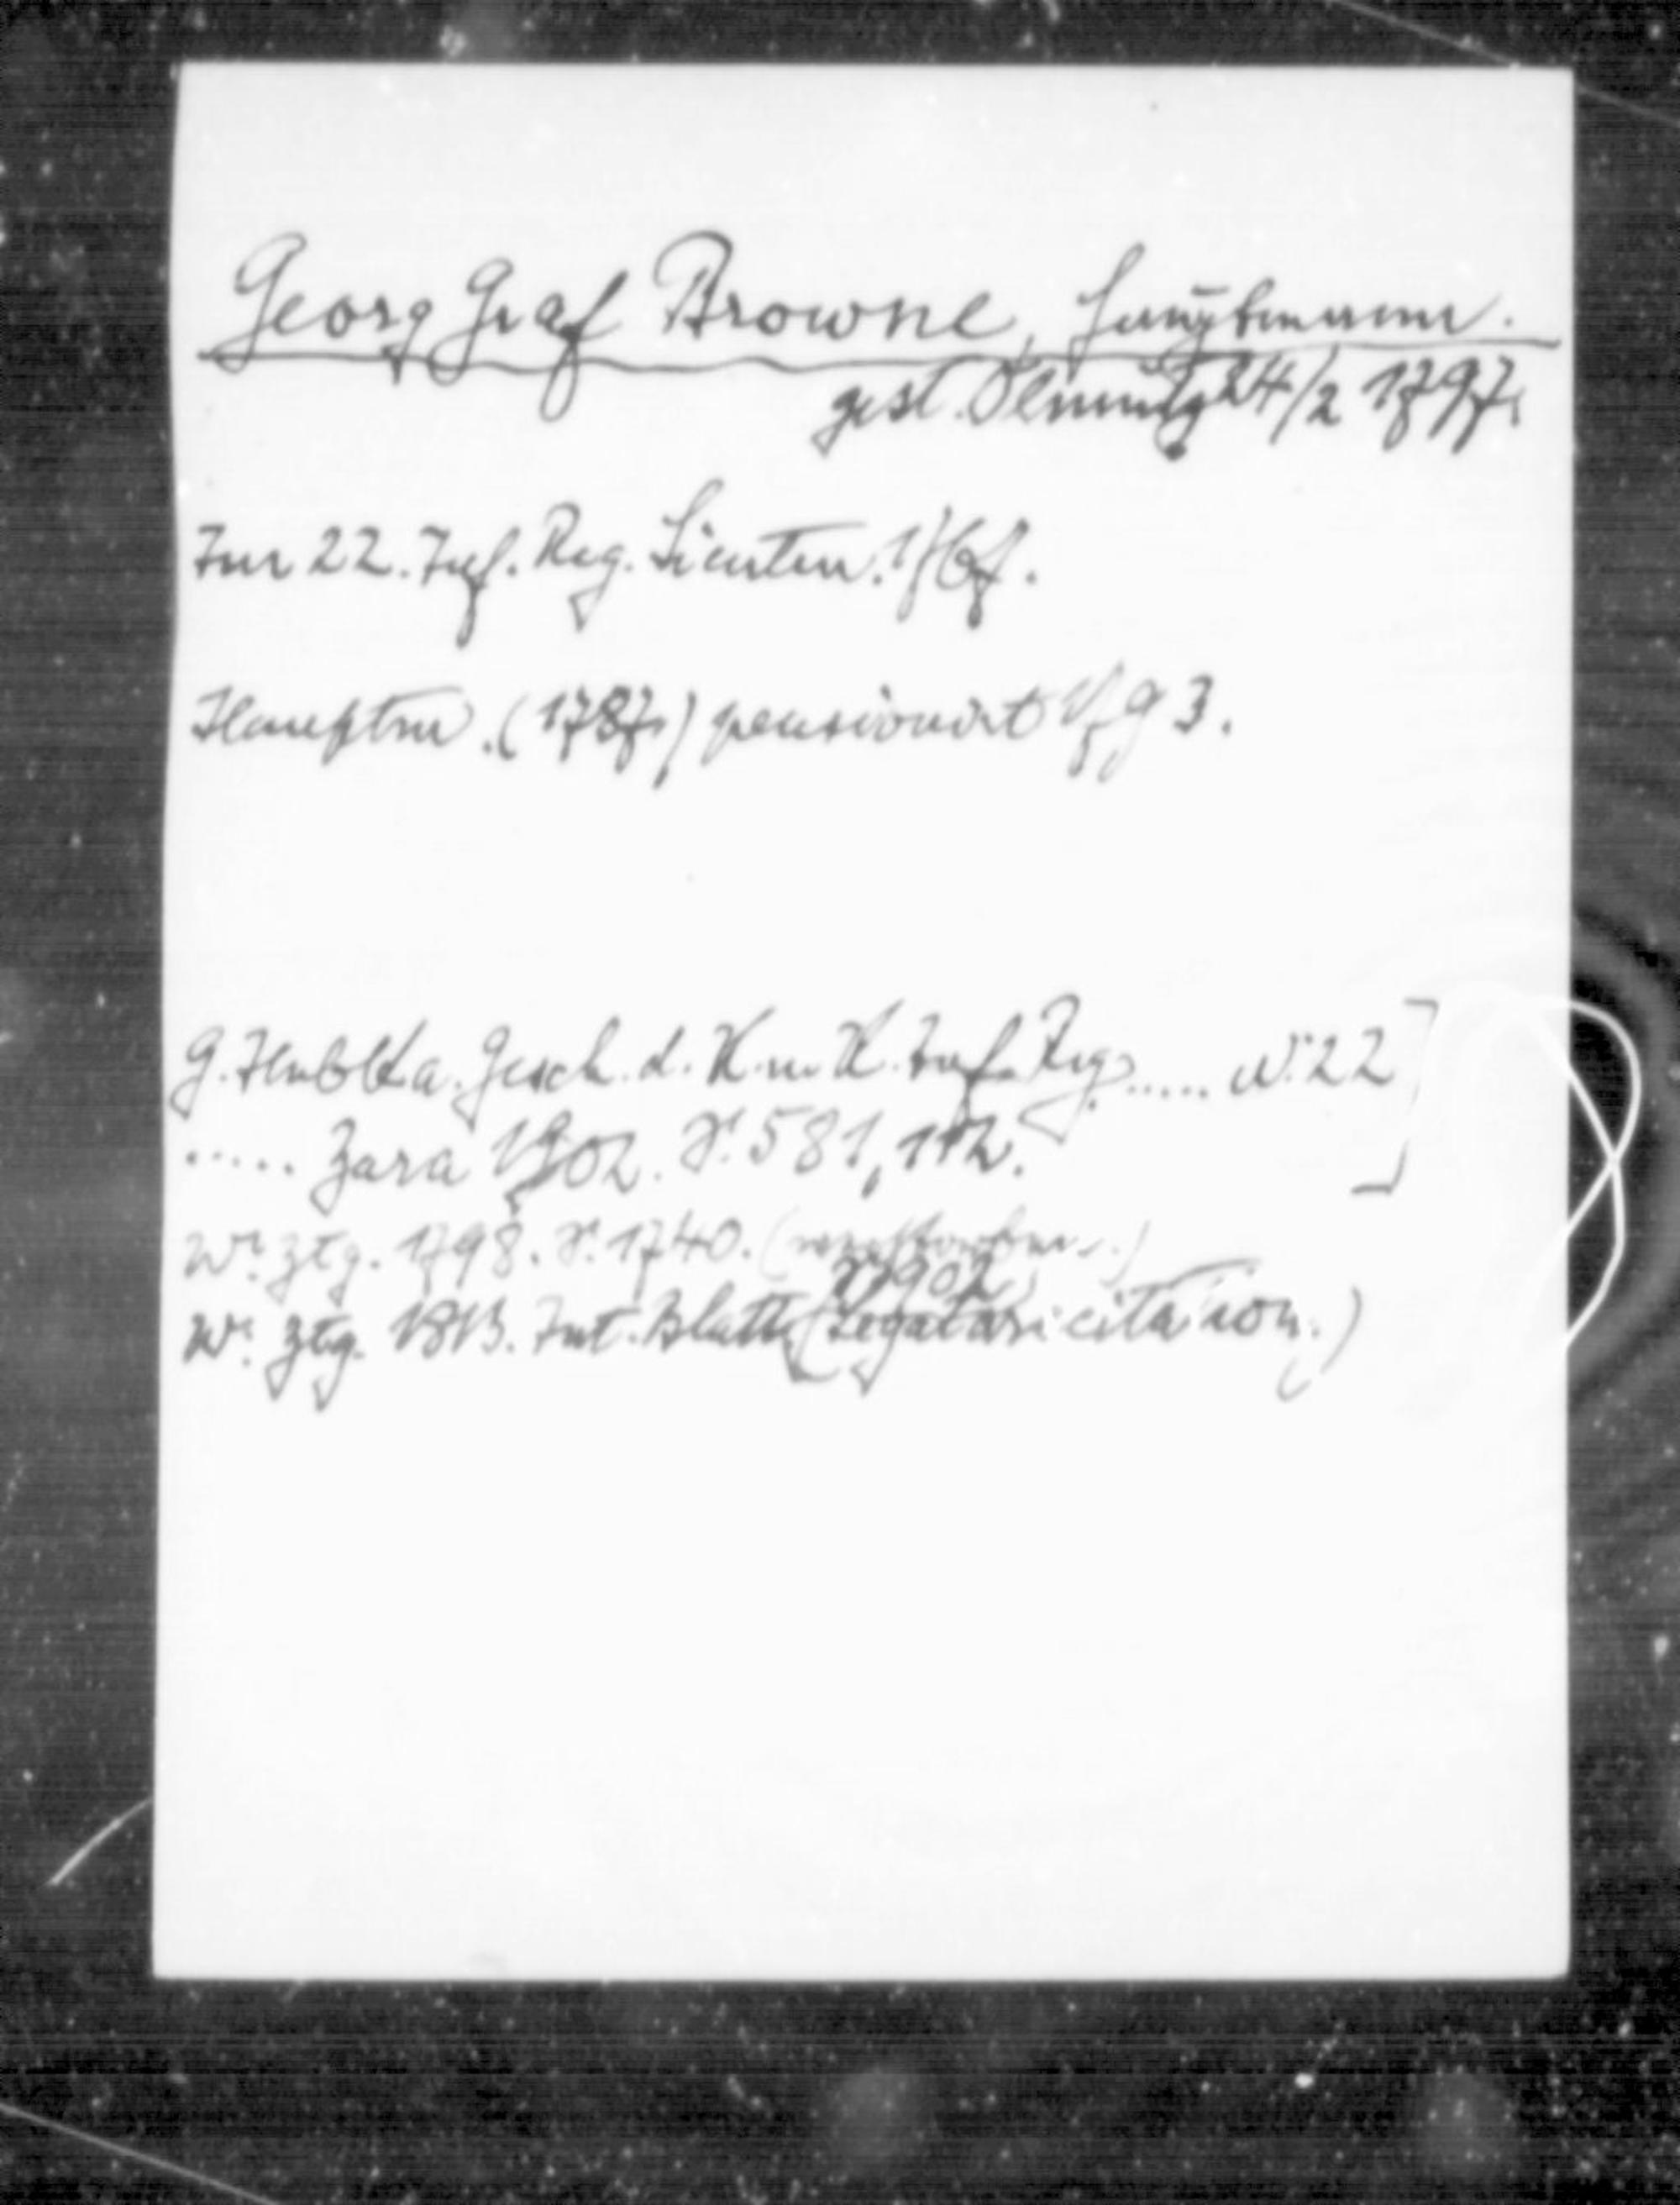 Georg Graf Browne, Hauptmann.
gest. Olmütz 24/2 1797.
Im 22. Inf. Reg. Lieuten. 1767.
Hauptm. (1787) pensionirt 1793.
G. Hubka. Gesch. d. K. u. K. Inf. Reg. ..... N: 22]
..... Zara 1902. S. 581, 112.
Wr. Ztg. 1798. S. 1740. (verstorben.)
S. 902
Wr. Ztg. 1813. Int. Blatt (Legatari citation.)